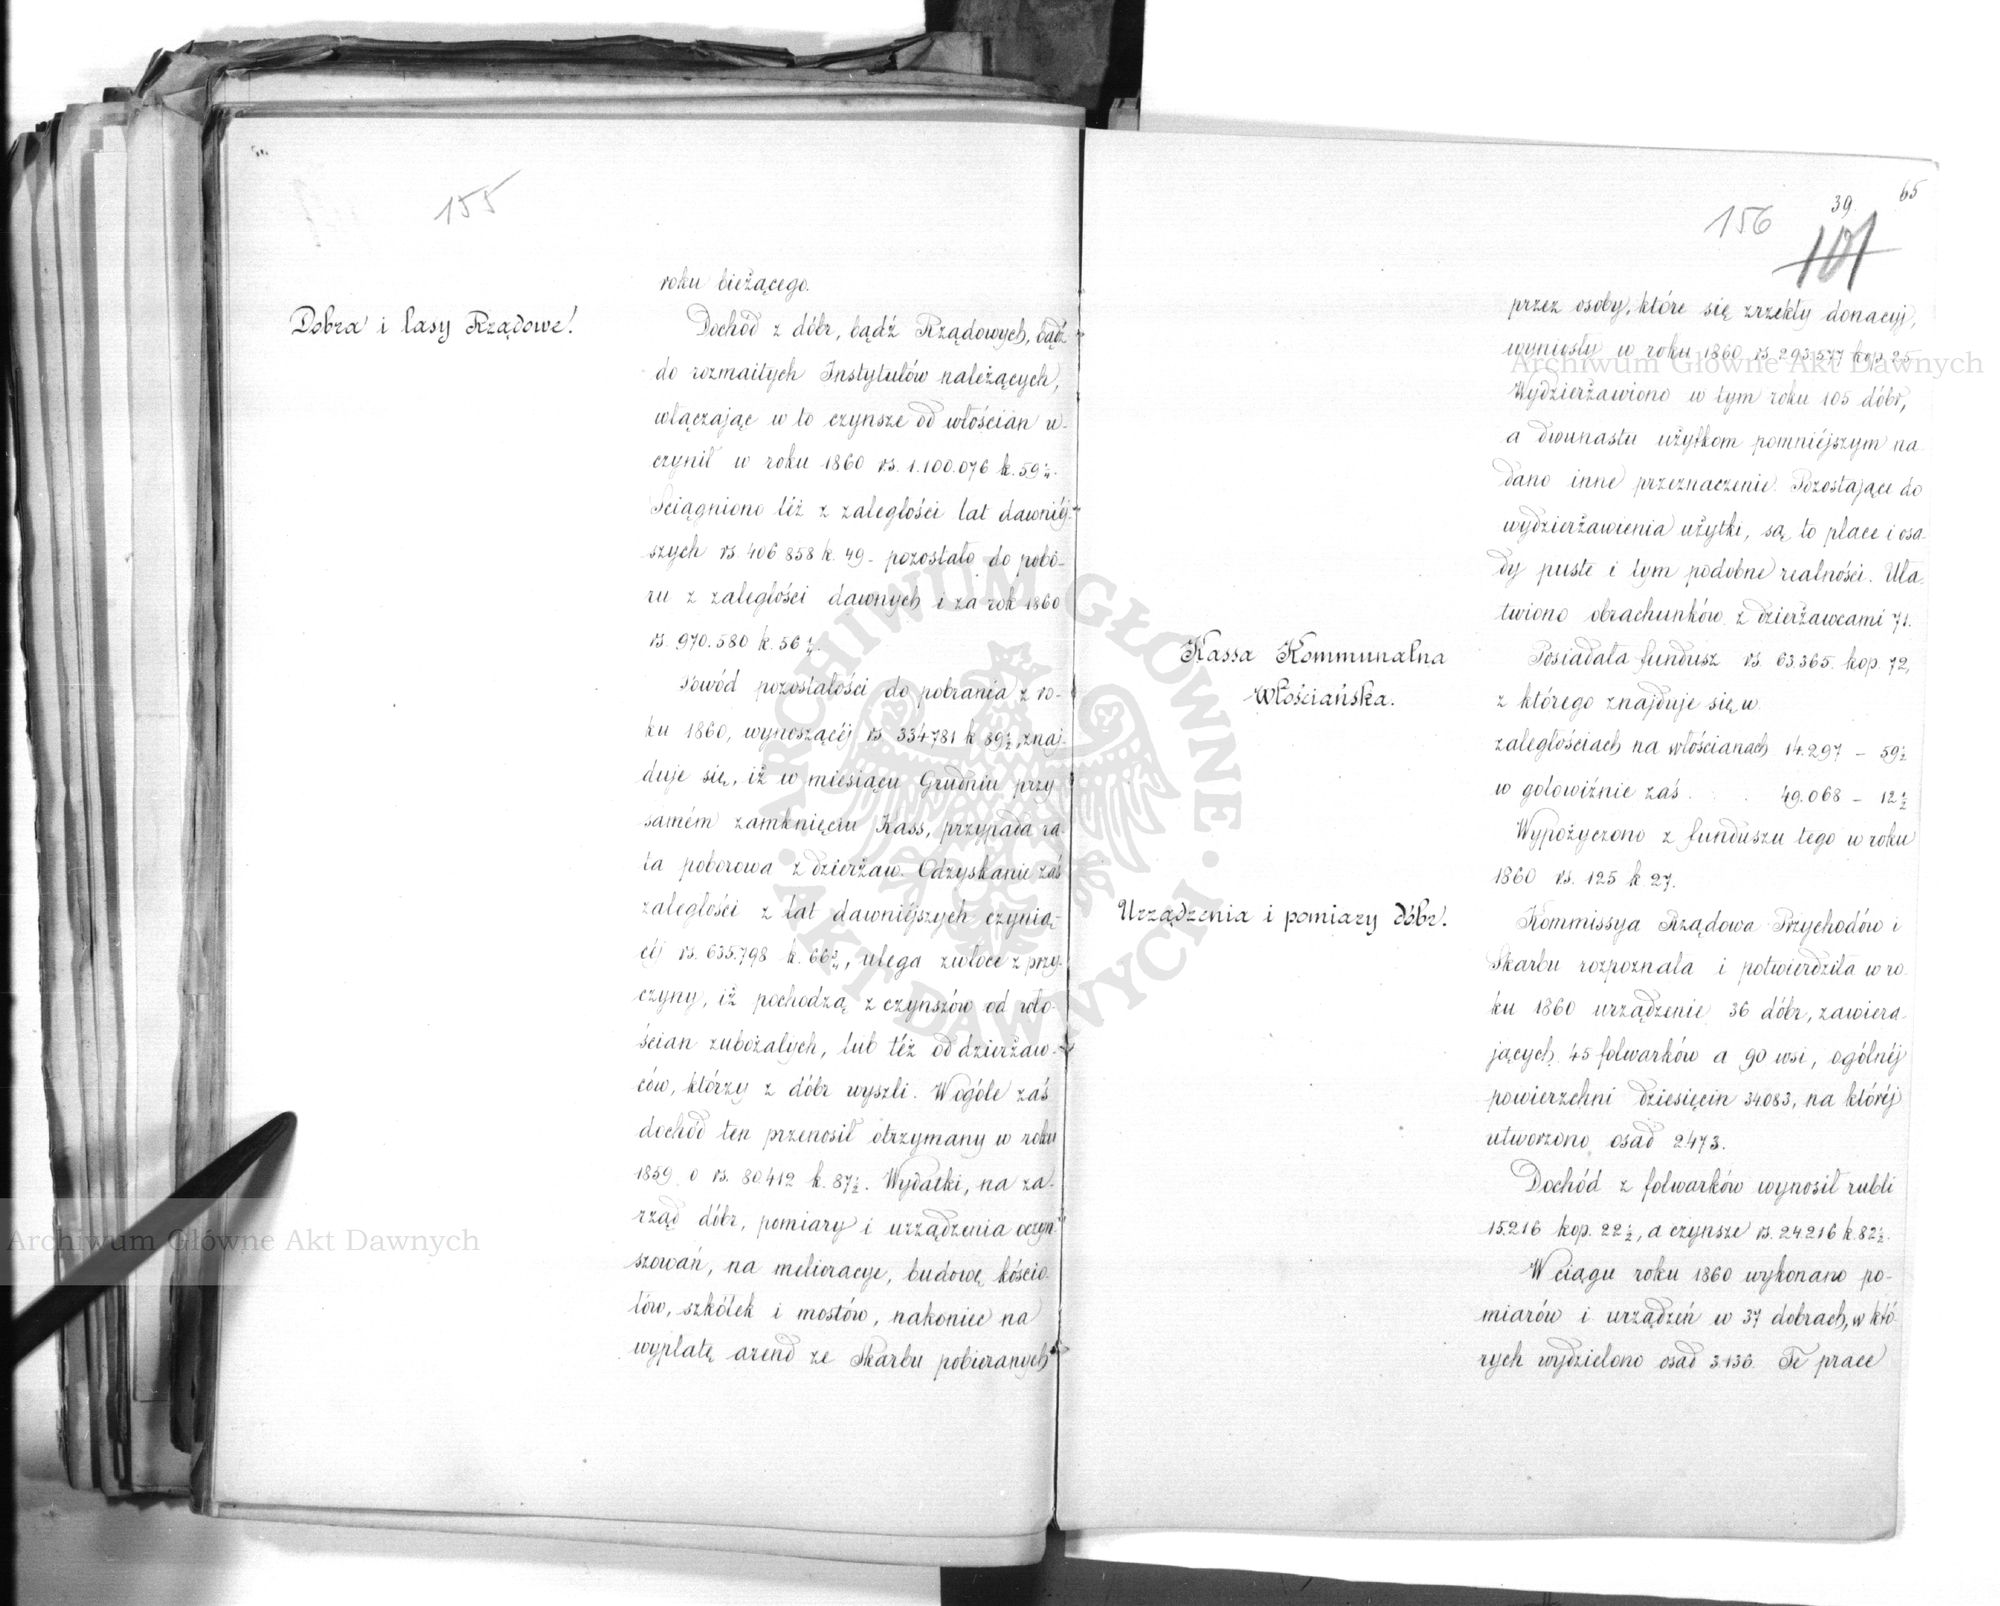 155
roku bieżącego.
Dobra i lasy Rządowe.
Dochód z dóbr, bądź Rządowych, bądź
do rozmaitych Instytutów należących,
włączając w to czynsze od włościan u-
czynił w roku 1860 rs. 1.100.076 k. 59¼.
Ściągniono téż z zaległości lat dawniéj-
szych rs 406 858 k. 49 - pozostało do pobo-
ru z zaległości dawnych i za rok 1860
rs. 970.580 k. 56¼.
Powód pozostałości do pobrania z ro-
ku 1860, wynoszącéj rs 334781 k 89½, znaj-
duje się, iż w miesiącu Grudniu przy
samém zamknięciu Kass, przypada ra-
ta poborowa z dzierżaw. Odzyskanie zaś
zaległości z lat dawniéjszych czynią-
céj rs. 635.798 k. 66¾, ulega zwłoce z przy-
czyny, iż pochodzą z czynszów od wło-
ścian zubożałych, lub téż od dzierżaw-
ców, którzy z dóbr wyszli. W ogóle zaś
dochód ten przenosił otrzymany w roku
1859 o rs. 80.412 k. 87½. Wydatki, na za-
rząd dóbr, pomiary i urządzenia oczyn-
szowań, na melioracye, budowę kościo-
łów, szkółek i mostów, nakoniec na
wypłatę arend ze Skarbu pobieranych
156
39.
65
101
przez osoby, które się zrzekły donacyj,
wyniosły w roku 1860 rs 293.577 kop. 25
Wydzierżawiono w tym roku 105 dóbr,
a dwunastu użytkom pomniéjszym na-
dano inne przeznaczenie. Pozostające do
wydzierżawienia użytki, są to place i osa-
dy puste i tym podobne realności. Uła-
twiono obrachunków z dzierżawcami 71.
Kassa Kommunalna
Włościańska.
Posiadała fundusz rs. 63.365. kop. 72,
z którego znajduje się w
zaległościach na włościanach 14.297 - 59½
w gotowiźnie zaś . . . 49.068 - 12½
Wypożyczono z funduszu tego w roku
1860 rs. 125 k. 27.
Urządzenia i pomiary dóbr.
Kommissya Rządowa Przychodów i
Skarbu rozpoznała i potwierdziła w ro-
ku 1860 urządzenie 36 dóbr, zawiera-
jących 45 folwarków a 90 wsi, ogólnéj
powierzchni dziesięcin 34.083, na któréj
utworzono osad 2473.
Dochód z folwarków wynosił rubli
15.216 kop. 22½, a czynsze rs. 24.216 k. 82½.
W ciągu roku 1860 wykonano po-
miarów i urządzeń w 37 dobrach, w któ-
rych wydzielono osad 3.136. Te prace
Archiwum Główne Akt Dawnych
Archiwum Główne Akt Dawnych
ARCHIWUM GŁÓWNE AKT DAWNYCH